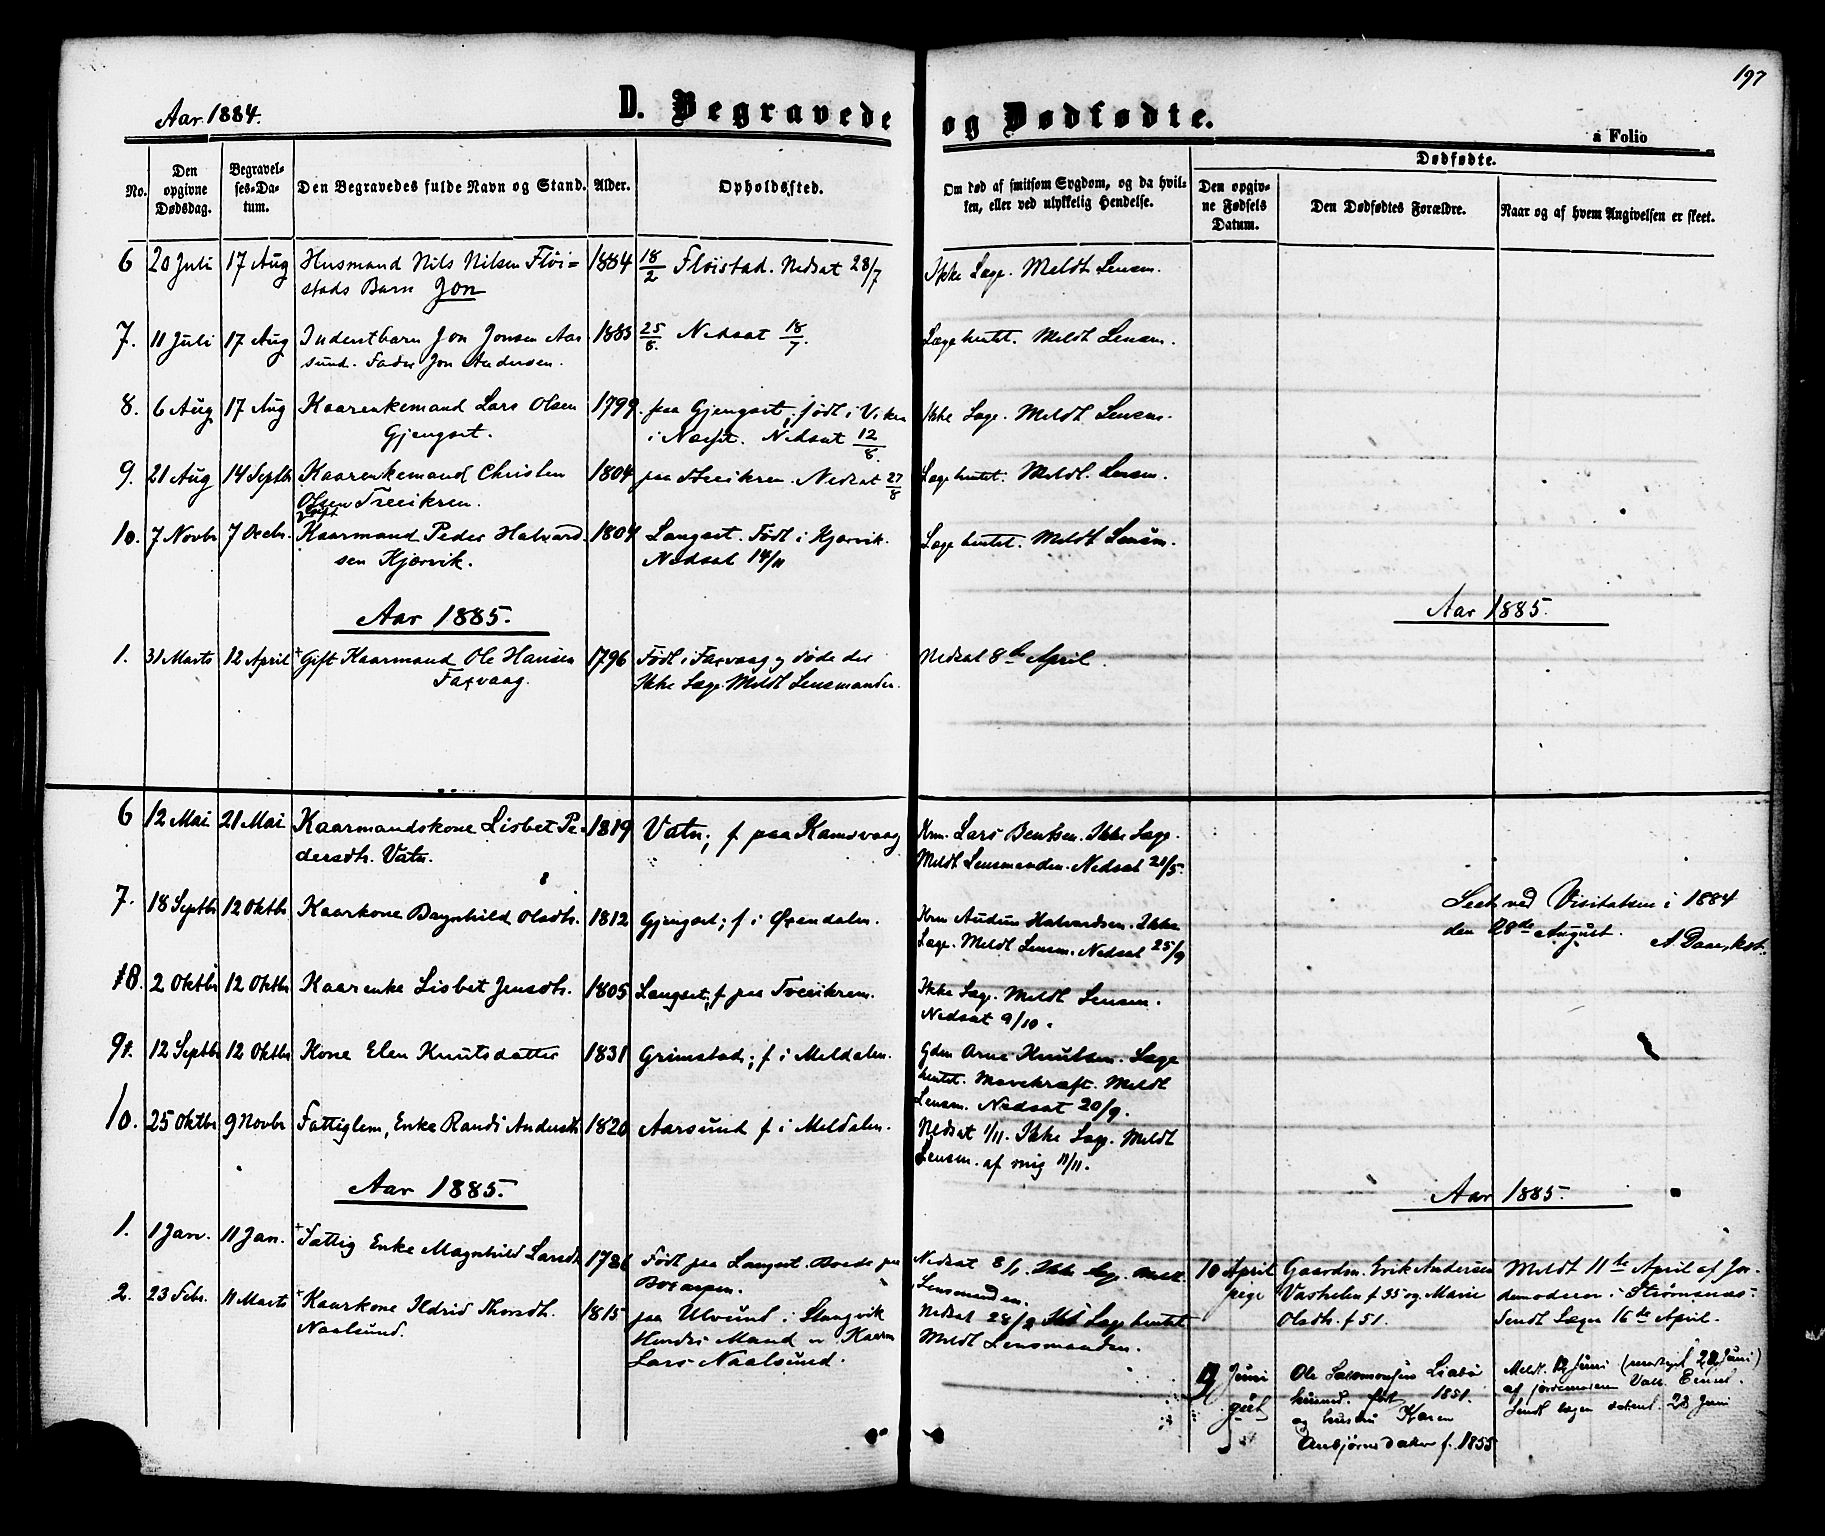 197
Aar 1884.
D. Begravede og Dødfødte.
a Folio
No.
Den opgivne Dødsdag.
Begravelses-Datum.
Den Begravedes fulde Navn og Stand.
Alder.
Opholdssted.
Om død af smitsom Sygdom, og da hvilken, eller ved ulykkelig Hendelse.
Dødfødte.
Den opgivne Fødsels Datum.
Den Dødfødtes Forældre.
Naar og af hvem Angivelsen er skeet.
6 20 Juli 17 Aug Husmand Nils Nilsen Fløi- 1884 18/2 Fløistad. Nedsat 28/7 Ikke Læge. Meldt Lensm.
stads Barn Jon
7. 11 Juli 17 Aug Inderstbarn Jon Jonsen Aar- 1883 25/6. Nedsat 18/7. Læge hentet. Meldt Lensm.
sund. Fader Jon Andersen.
8. 6 Aug 17 Aug Kaarenkemand Lars Olsen 1799. paa Gjengset; født i Viken Ikke Læge. Meldt Lensm.
Gjengset. i Nesset. Nedsat 12/8.
9. 21 Aug 14 Septbr Kaarenkemand Christen 1804 paa Tveeikren. Nedsat 27/8 Læge hentet. Meldt. Lensm.
Olsen Treeikrem.
10. 7 Novbr 7 Decbr. gift Kaarmand Peder Halvard- 1804 Langset. Født i Kjørvik. Læge hentet. Meldt Lensm.
sen Kjørvik. Nedsat 14/11
Aar 1885.
Aar 1885.
1. 31 Marts 12 April + Gift Kaarmand Ole Hansen 1796 Født i Faxvaag og døde der Nedsat 8de April.
Faxvaag. Ikke Læge. Meldt Lensmanden.
6 12 Mai 21 Mai Kaarmandskone Lisbet Pe- 1819 Vatn; f paa Kamsvaag Krm. Lars Bentsen. Ikke Læge.
dersdtr. Vatn. Meldt Lensmanden. Nedsat 21/5.
7. 18 Septbr 12 Oktbr Kaarkone Bagnhild Olsdtr. 1812 Gjengset; f i Øxendalen. Krm Audun Halvardsen. Ikke
Læge. Meldt Lensm. Nedsat 25/9
Seet ved Visitatsen i 1884
den 28de August. A. Daae, kst.
8. 2 Oktbr 12 Oktbr Kaarenke Lisbet Jensdtr. 1805 Langset; f paa Tveeikrem. Ikke Læge. Meldt Lensm.
Nedsat 9/10.
9. 12 Septbr 12 Oktbr Kone Elen Knutsdatter 1831 Grimstad; f i Meldalen. Gdm Arne Knutsen. Læge
hentet. Mavekræft. Meldt
Lensm. Nedsat 20/9.
10. 25 Oktbr 9 Novbr Fattiglem, Enke Randi Andersdtr 1820 Aarsund f i Meldalen. Nedsat 1/11. Ikke Læge. Meldt
Lensm. af mig 11/11.
Aar 1885.
Aar 1885.
1. 1 Jan. 11 Jan. + Fattig Enke Magnhild Larsdtr 1786 Født paa Langset. Boede paa Nedsat 8/1. Ikke Læge. Meldt
Boxaspen. Lensmanden.
2. 23 Febr. 11 Marts + Kaarkone Ildrid Thorsdtr. 1815 paa Ulvund i Stangvik Nedsat 28/2 Læge hentet
Naalsund. Hendes Mand er Kaarm Meldt Lensmanden.
Lars Naalsund.
10 April Gaardm. Erik Andersen Meldt 11te April af Jor-
pige Vasholm f 35 og Marie demoderen i Strømsnes.
Olsdtr. f 51. Sendt Lægen 16de April.
Juni Ole Salomonsen Liabø Meldt 12 Juni
gut husmd. født 1851.
og hustru Karen
Ansbjørnsdatter f. 1855 Sendt lægen 22 Juni